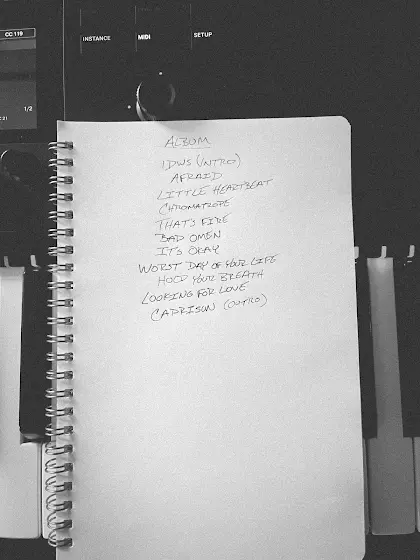 CC 119
INSTANCE MIDI SETUP
1/2
ALBUM
IDWS (INTRO)
AFRAID
LITTLE HEARTBEAT
CHROMATROPE
THAT'S FINE
BAD OMEN
IT'S OKAY
WORST DAY OF YOUR LIFE
HOLD YOUR BREATH
LOOKING FOR LOVE
(OUTRO)